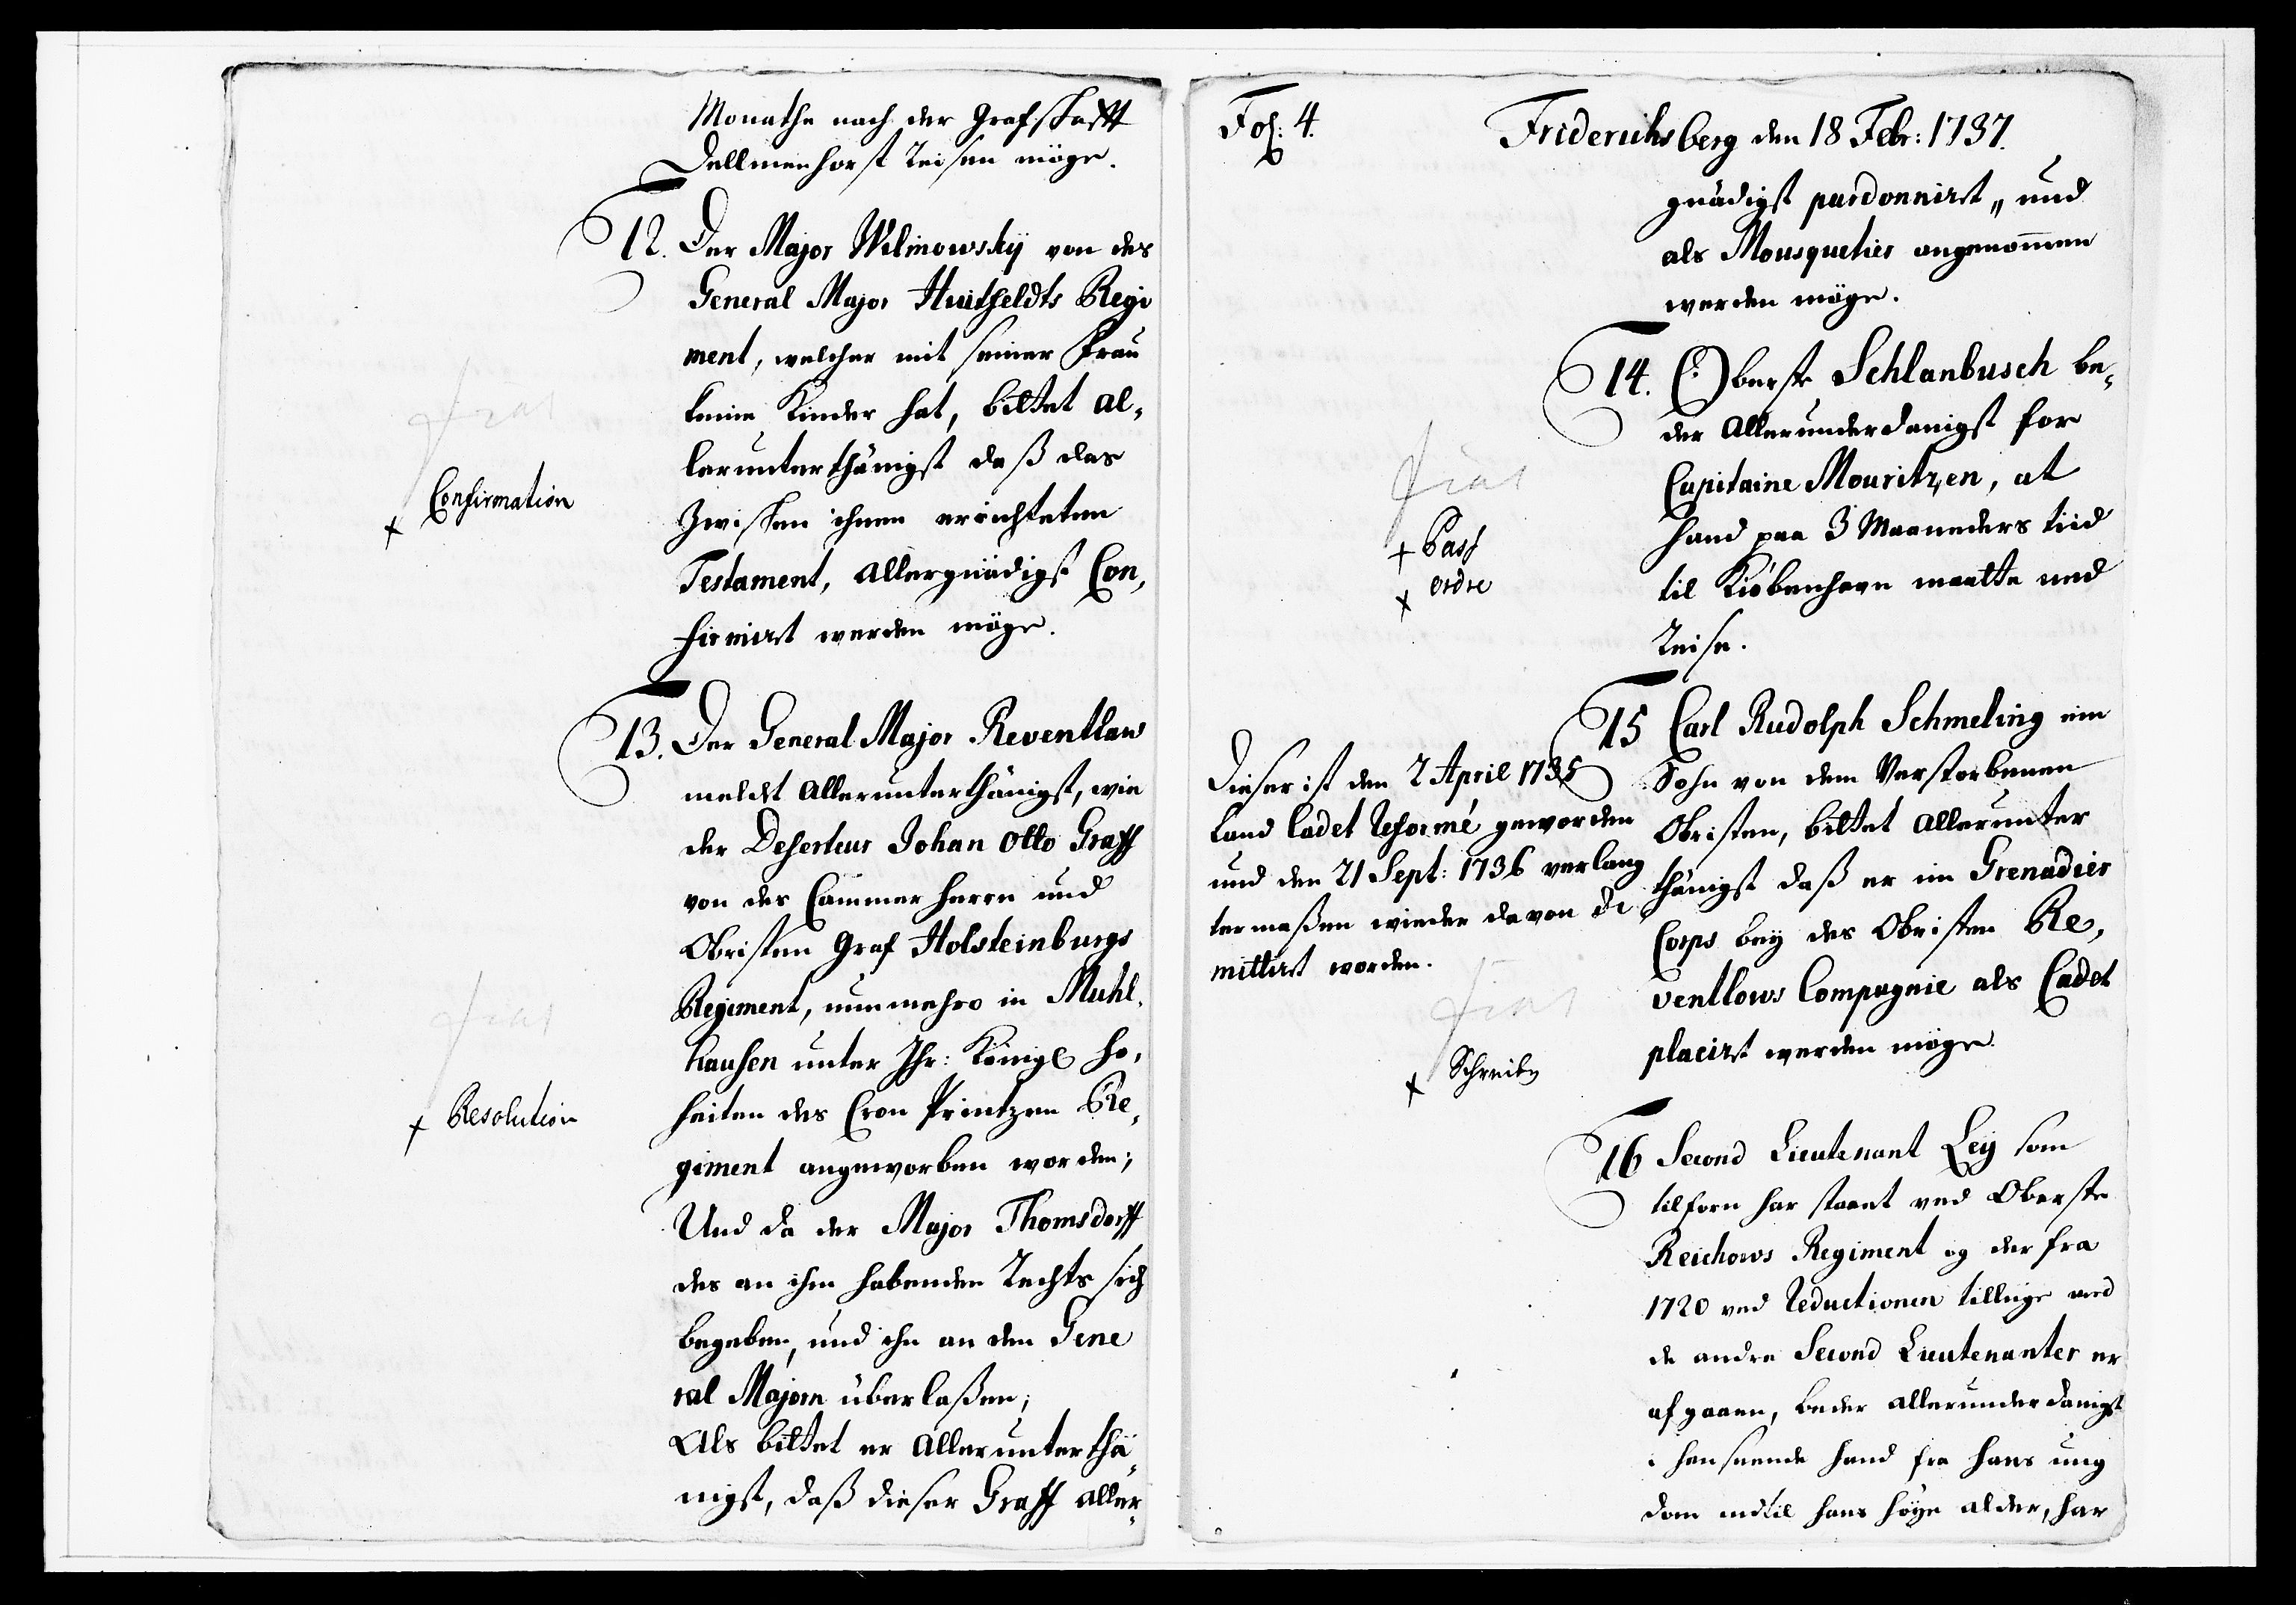 Monathe nach der Grafschafft
Dellmenhorst Reisen möge.
12. Der Major Wilmowsky von des
General Major Huitfeldts Regi
ment, welcher mit seiner Frau
keine Kinder hat, bittet al-
lerunterthänigst daß das
Zwischen ihnen errichteten
Testament, allergnädigst Con,
firmirt werden möge.
fiat
x Confirmation
13. Der General Major Reventlaw
meldet allerunterthänigst, wie
der Deserteur Johan Otto Graff
von des Cammerherrn und
Obristen Graf Holsteinburgs
Regiment, nunmehro in Muhl,
hausen unter Ihr: Königl Ho,
heiten des Cron Printzen Re,
giment angeworben worden;
Und da der Major Thomsdorff
des an ihm habenden Rechts sich
begeben, und ihn an den Gene
ral Majorn überlaßen;
Als bittet er allerunterthä,
nigst, daß dieser Graff aller-
fiat
x Resolution
Fol: 4.
Friderichsberg den 18 Febr: 1737.
gnädigst pardonnirt, und
als Mousquetier angenommen
werden möge.
14. Oberste Schlanbusch be,
der allerunderdanigst for
Capitaine Mouritzen, at
hand paa 3 Maaneders tiid
til Kiøbenhavn maatte ned
Reise.
fiat
x Pass
x ordre
15 Carl Rudolph Schmeling ein
Sohn von dem Verstorbenen
Obristen, bittet allerunter
thänigst daß er im Grenadier
Corps bey des Obristen Re,
ventlows Compagnie als Cadet
placirt werden möge.
Dieser ist den 2 April 1735
Land Cadet Reformé geworden
und den 21 Sept: 1736 verlang
termaßen wieder davon di
mittirt worden.
fiat
x Schreiben
16 Second Lieutenant Ley som
tilforn har staaet ved Oberste
Reichows Regiment og der fra
1720 ved Reductionen tillige med
de andre Second Lieutenanter er
afgaaen, beder allerunderdanigst
i henseende hand fra hans ung
dom indtil hans høye alder, har